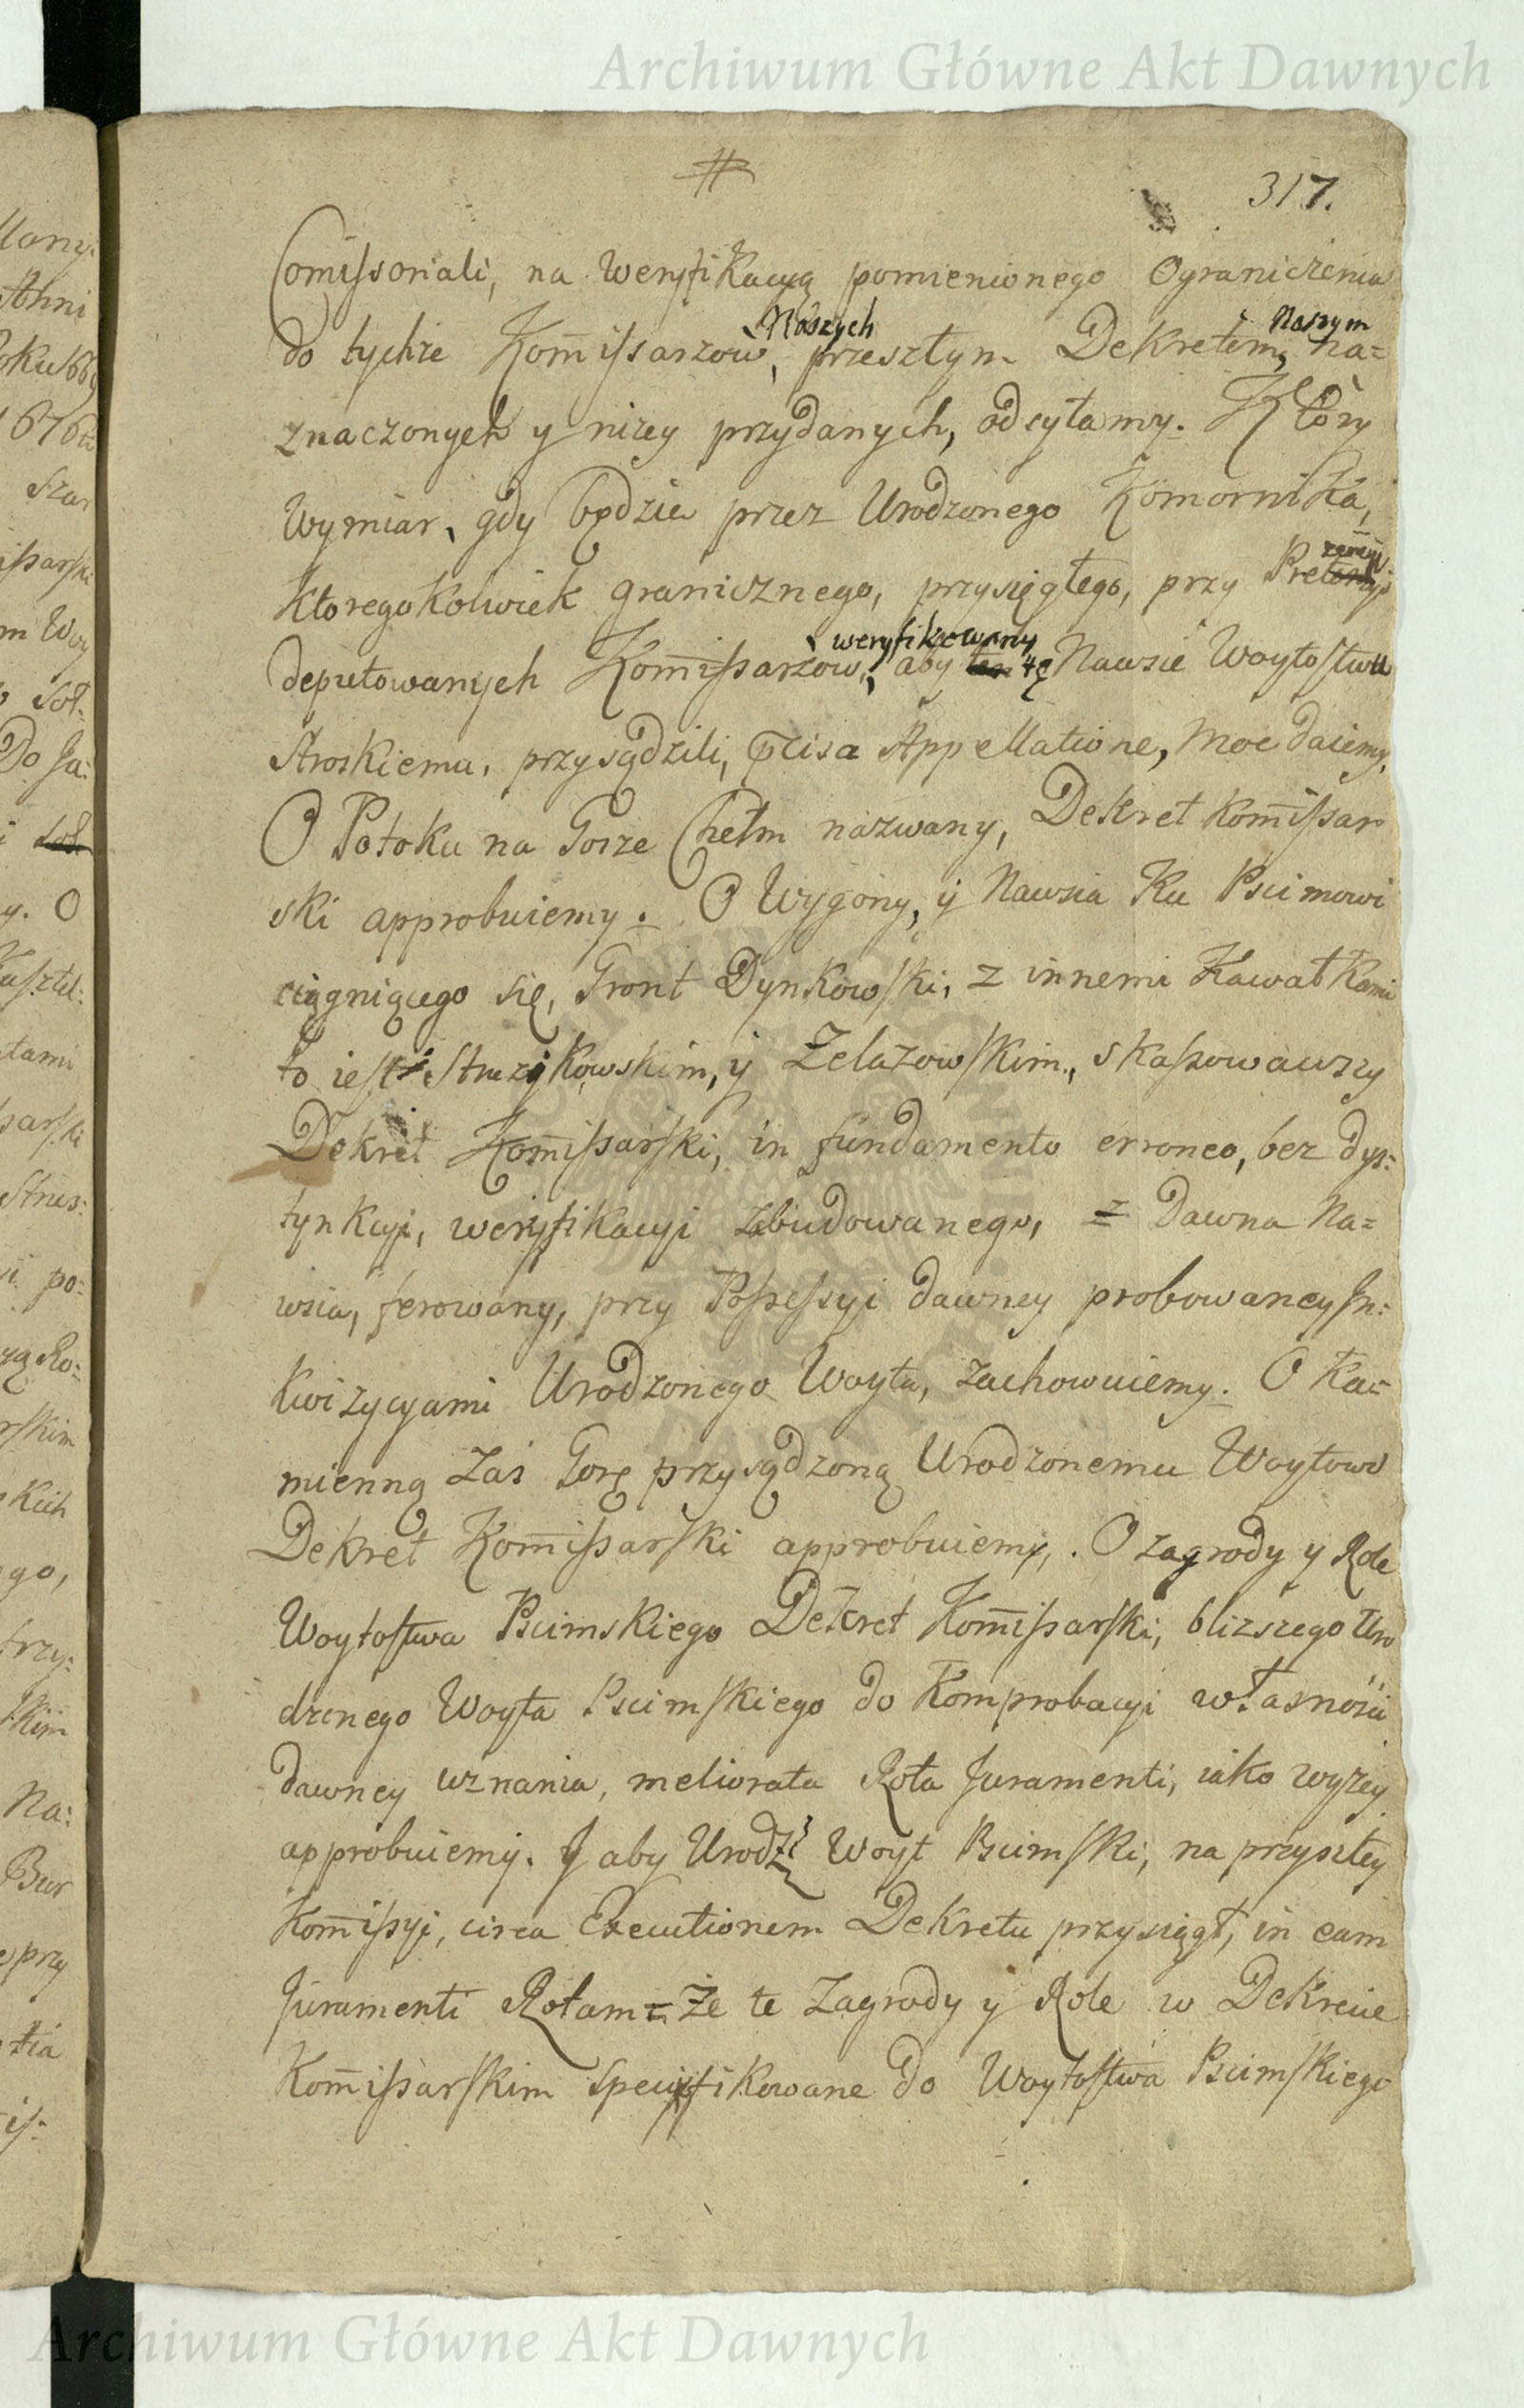 Archiwum Główne Akt Dawnych
317.
Comissoriali, na Weryfikacyą pomienionego Ograniczenia
Naszych Naszym
do tychże Kom̄issarzow, przeszłym Dekretem, na=
znaczonych y niżey przydanych, odsyłamy. Ktory
Wymiar, gdy będzie przez Urodzonego Komornika,
Ktoregokolwiek granicznego, przysięgłego, przy
weryfikowany
deputowanych Kom̄issarzow, aby tę Nawsie Woytostwu
Stroskiemu, przysądzili, Appellatione, moc daiemy,
O Potoku na Gorze Chełm nazwany, Dekret Kom̄issar
ski approbuiemy. O Wygony, y Nawsia Ku Pscimowi
ciągniącego się, Gront Dynkowski, z innemi Kawałkami
to iest Struzykowskim, y Zelazowskim, skassowawszy
Dekret Kom̄issarski, in fundamento erroneo, bez dys=
tynkcyi, weryfikacyi zbudowanego, = Dawna Na=
wsia, ferowany, przy Possessyi dawney probowaney In=
kwizycyami Urodzonego Woyta, zachowuiemy. O Ka=
mienną Zaś Gorę przysądzoną Urodzonemu Woytowi
Dekret Kom̄issarski approbuiemy, . O zagrody y Role
Woytostwa Pscimskiego Dekret Kom̄issarski, blizszego Uro
dzonego Woyta Pscimskiego do Komprobacyi własności
dawney uznania, meliorata Rota Juramenti, iako wyżey
approbuiemy. J aby Urodz Woyt Pscimski, na przyszłey
Kom̄issyi, circa Executionem Dekretu przysiągł, in eam
Juramenti Rotam = Że te Zagrody y Role w Dekrecie
Kom̄issarskim specyfikowane do Woytostwa Pscimskiego
Archiwum Główne Akt Dawnych